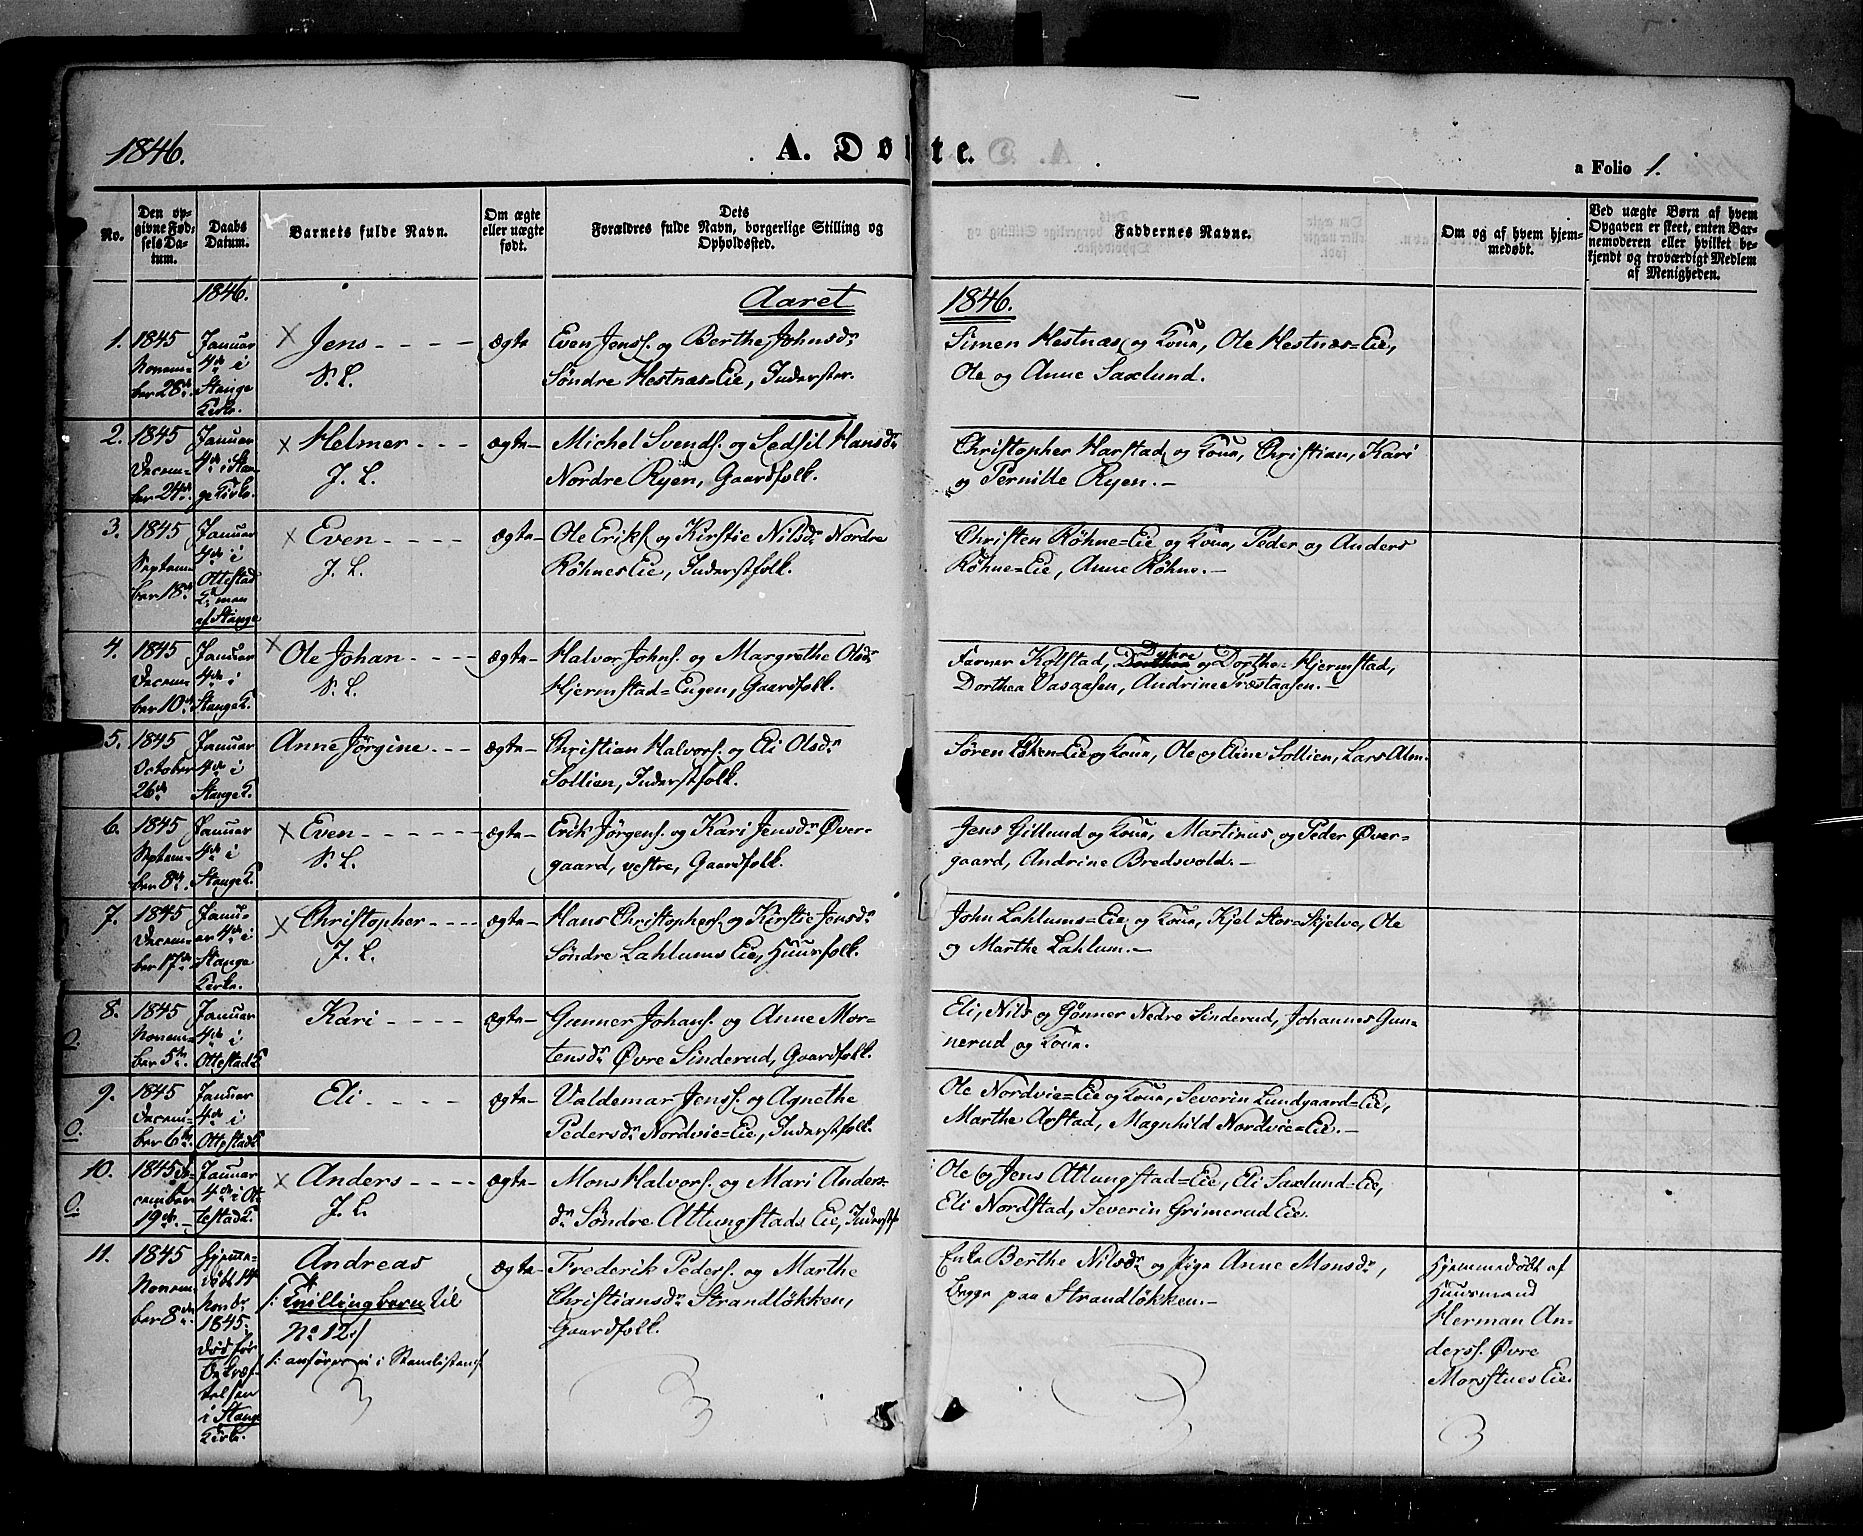 1846.
A. Døbte.
a Folio 1.
No.
Den op-
givne Fød-
sels Da-
tum.
Daabs
Datum.
Barnets fulde Navn.
Om ægte
eller uægte
født.
Dets
Forældres fulde Navn, borgerlige Stilling og
Opholdssted.
Faddernes Navne.
Om og af hvem hjem-
medøbt.
Ved uægte Børn af hvem
Opgaven er skeet, enten Bar-
nemoderen eller hvilket be-
kjendt og troværdigt Medlem
af Menigheden.
1846.
Aaret
1846.
1.
1845
Novem-
ber 28de
Januar
4de i
Stange
Kirke.
Jens
S. L.
ægte
Even Jens. og Berthe Johnsdr
Søndre Hestnæs=Eie, Inderster.
Simen Hestnæs og Kone, Ole Hestnæs=Eie,
Ole og Anne Saxlund.
2.
1845
Decem-
ber 24de
Januar
4de i Stan-
ge Kirke.
Helmer
J. L.
ægte
Michel Svends. og Sedsil Hansdr
Nordre Ryen, Gaardfolk.
Christopher Harstad og Kone, Christian, Kari
og Pernille Ryen.
3.
1845
Septem-
ber 18de
Januar
4de i
Ottestad
K. men
af Stange
Even
J. L.
ægte
Ole Eriks. og Kirstie Nilsdr Nordre
Røhnes Eie, Inderstfolk.
Christen Røhne=Eie og Kone, Peder og Anders
Røhne=Eie, Anne Røhne.
4.
1845
Decem-
ber 10de
Januar
4de i
Stange K.
Ole Johan
S. L.
ægte
Halvor Johns. og Margrethe Olsdr
Hjermstad=Eugen, Gaardfolk.
Farner Kolstad, og Dorthe Hjermstad,
Dorthea Vasaasen, Andrine Præstaasen.
5.
1845
October
26de
Januar
4de i
Stange K.
Anne Jørgine
ægte
Christian Halvors. og Eli Olsdr
Sollien, Inderstfolk.
Søren Løken=Eie og Kone, Ole og Eline Sollien, Lars Alm.
6.
1845
Septem-
ber 8de
Januar
4de i
Stange K.
Even
S. L.
ægte
Erik Jørgens. og Kari Jensdr Øver-
gaard, vestre, Gaardfolk.
Jens Gillund og Kone, Martinus og Peder Øver-
gaard, Andrine Bredsvold.
7.
1845
Decem-
ber 17de
Janu-
ar 4de i
Stange
Kirke.
Christopher
J. L.
ægte
Hans Christophers. og Kirstie Jensdr
Søndre Lahlums Eie, Huusfolk.
John Lahlums=Eie og Kone, Kjel Store-Skjelve, Ole
og Marthe Lahlum.
8.
O.
1845
Novem-
ber 5te
Januar
4de i
Ottestad K
Kari
ægte
Gunner Johans. og Anne Mor-
tensdr Øvre Sinderud, Gaardfolk.
Eli, Nils og Gønner Nedre Sinderud, Johannes Gun-
nerud og Kone.
9.
O.
1845
Decem-
ber 6te
Januar
4de i
Ottestad K
Eli
ægte
Valdemar Jens. og Agnethe
Pedersdr Nordvie=Eie, Inderstfolk.
Ole Nordvie=Eie og Kone, Severin Lundgaard=Eie,
Marthe Arstad, Magnhild Nordvie=Eie.
10.
O.
1845 De-
cember
19de
Januar
4de i Ot-
testad K.
Anders
J. L.
ægte
Mons Halvors. og Mari Anders-
dr Søndre Atlungstads Eie, Inderstf
Ole og Jens Atlungstad=Eie, Eli Saxlund=Eie,
Eli Nordstad, Severin Grimerud Eie.
11.
1845
Novem-
ber 8de
Hjemme-
døbt 14
Novbr
1845.
død før
Bekræf-
telsen
i Stange
Kirke.
Andreas
/: Tvillingbarn til
No 12 :/
/: anføres ei i Stamlisten :/
ægte
Frederik Peders. og Marthe
Christiansdr Strandløkken,
Gaardfolk.
Enke Berthe Nilsdr og Pige Anne Monsdr,
begge paa Strandløkken.
Hjemmedøbt af
Huusmand
Herman An-
derss. Øvre
Morstues Eie.